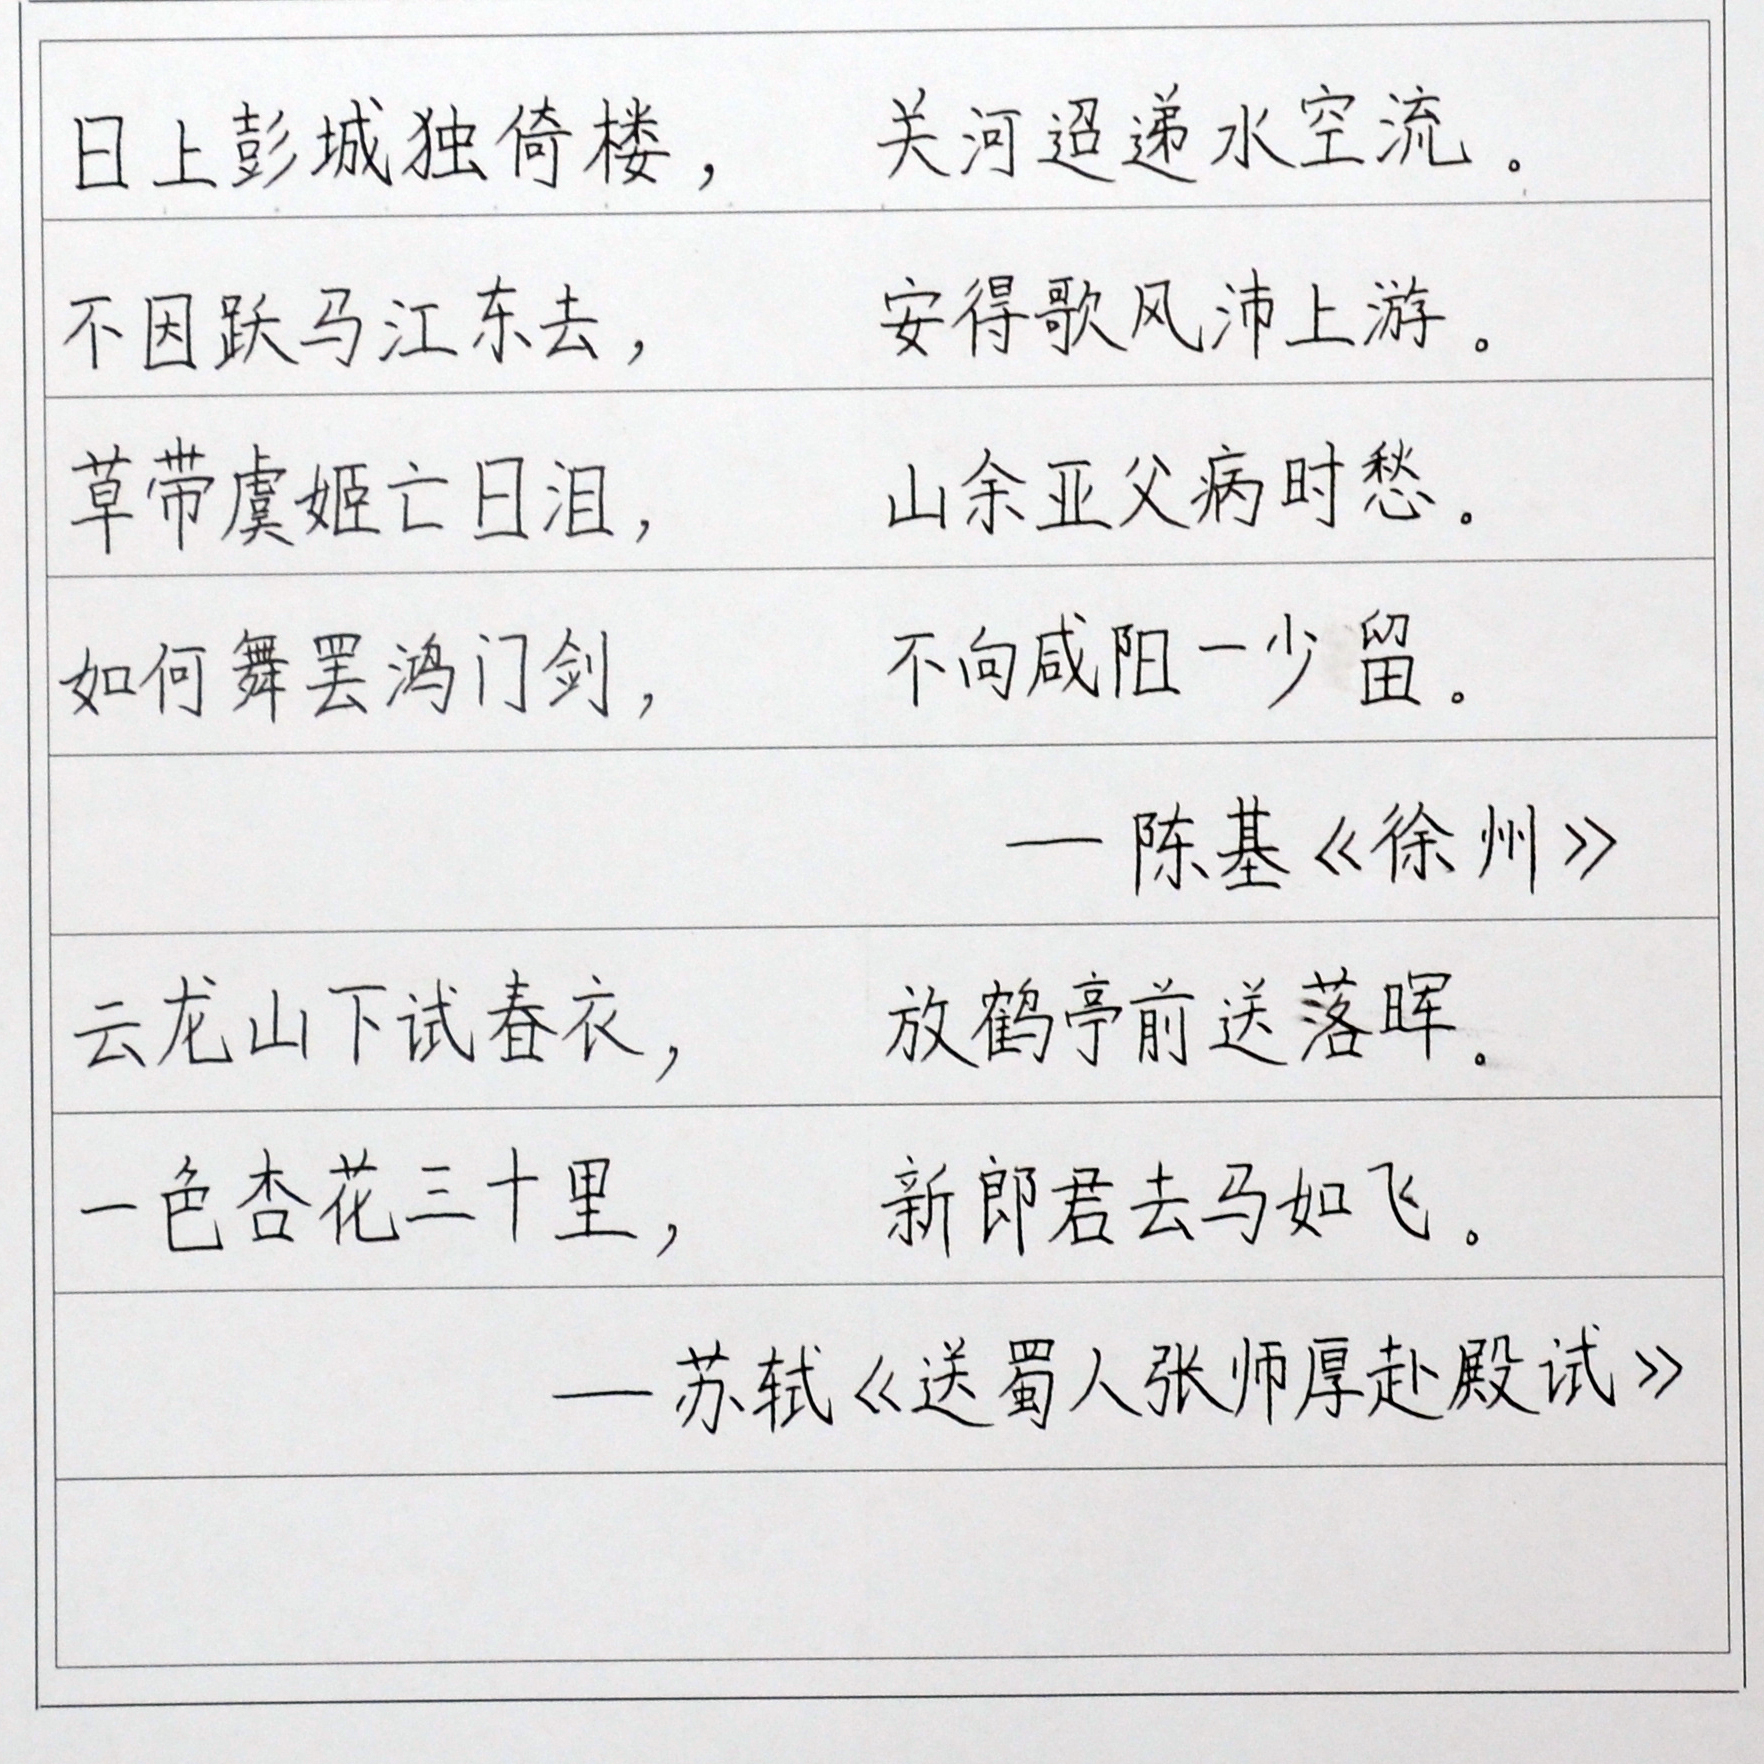 日上彭城独倚楼，关河迢递水空流。
不因跃马江东去，安得歌风沛上游。
草带虞姬亡日泪，山余亚父病时愁。
如何舞罢鸿门剑，不向咸阳一少留。
—陈基《徐州》
云龙山下试春衣，放鹤亭前送落晖。
一色杏花三十里，新郎君去马如飞。
—苏轼《送蜀人张师厚赴殿试》